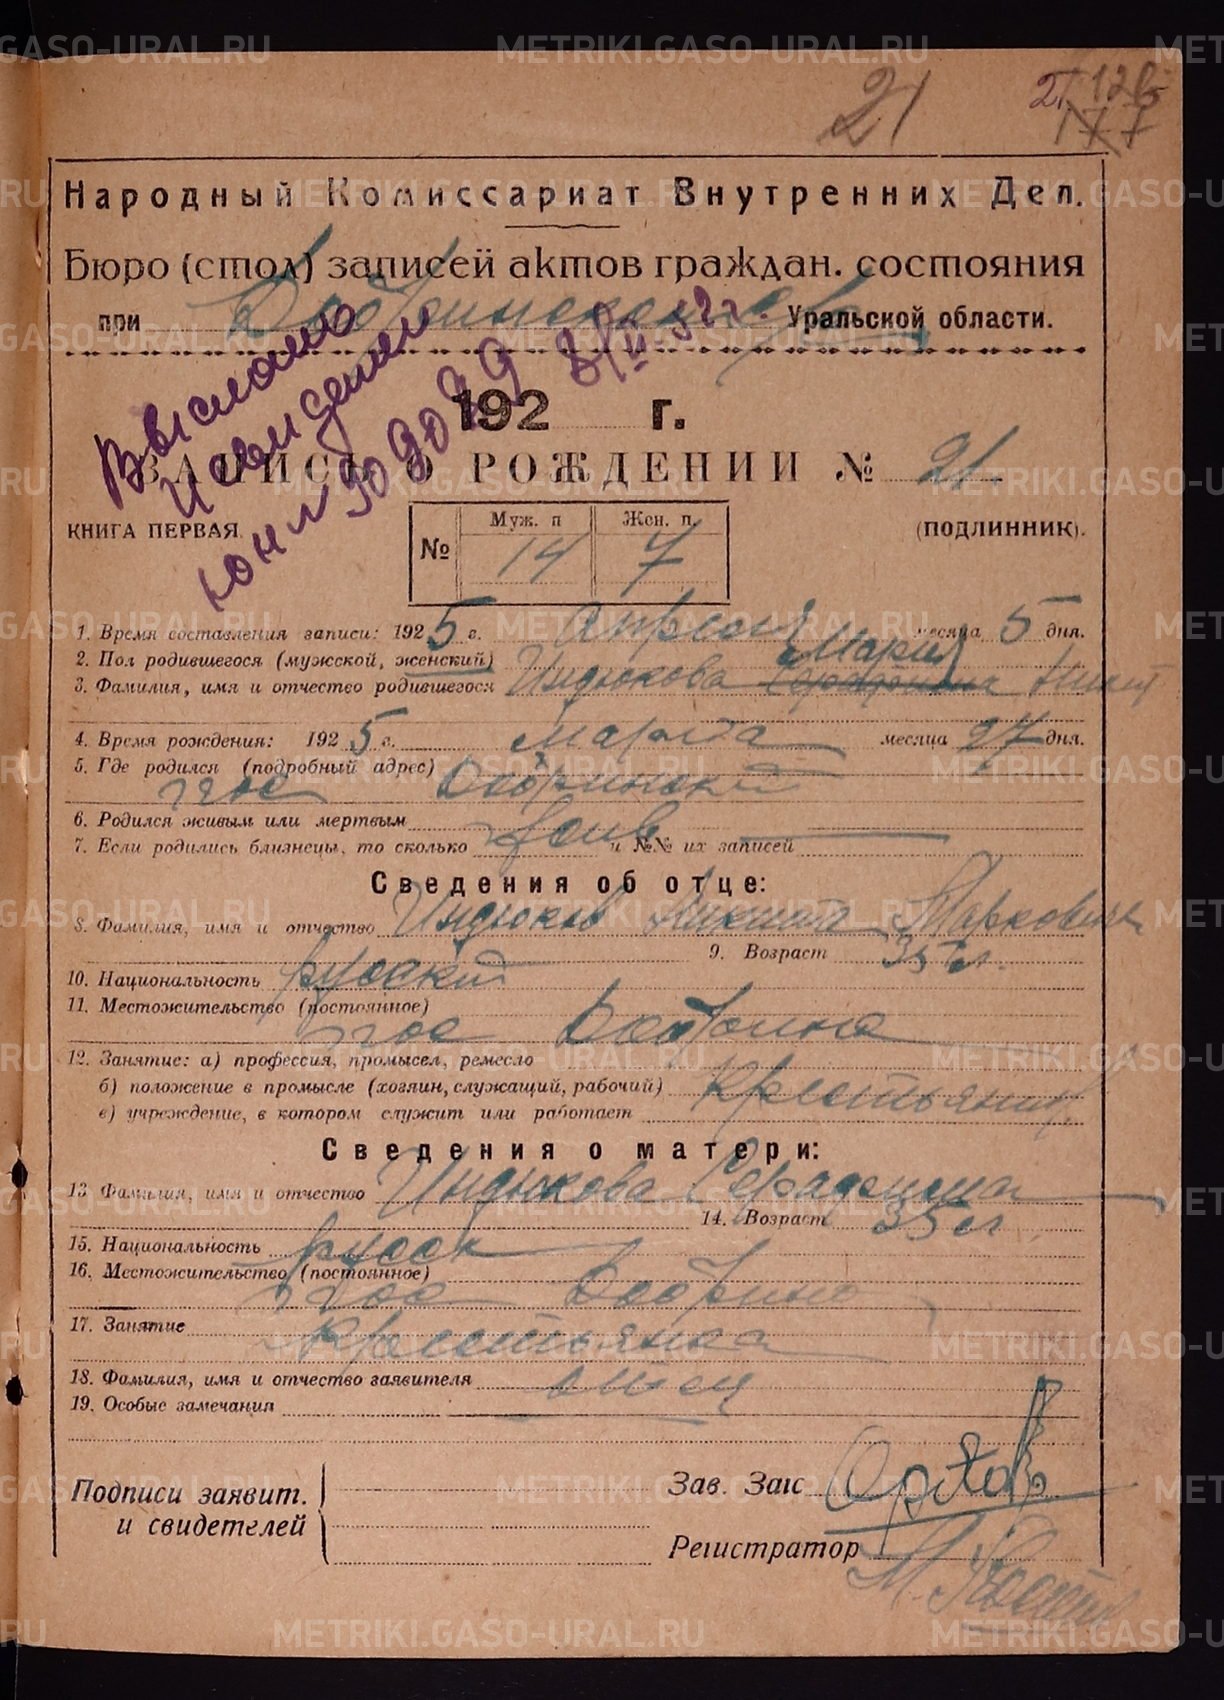 21
21 126
177
Народный Комиссариат Внутренних Дел.
Бюро (стол) записей актов граждан. состояния
при Уральской области.
Выслано
192 г.
ЗАПИСЬ О РОЖДЕНИИ № 21
КНИГА ПЕРВАЯ.
(ПОДЛИННИК).
№ Муж. п Жен. п.
14 7
1. Время составления записи: 1925 г. Апреля месяца 5 дня.
2. Пол родившегося (мужской, женский) Мария
3. Фамилия, имя и отчество родившегося Индюкова Никит
4. Время рождения: 1925 г. марта месяца 27 дня.
5. Где родился (подробный адрес)
пос Добринский
6. Родился живым или мертвым жив
7. Если родились близнецы, то сколько и №№ их записей
Сведения об отце:
8. Фамилия, имя и отчество Индюков Никита Маркович
9. Возраст 35 л.
10. Национальность русский
11. Местожительство (постоянное)
пос Добрина
12. Занятие: а) профессия, промысел, ремесло
б) положение в промысле (хозяин, служащий, рабочий) Крестьянин
в) учреждение, в котором служит или работает
Сведения о матери:
13 Фамилия, имя и отчество Индюкова
14. Возраст 35 л
15. Национальность русск
16. Местожительство (постоянное)
пос Добрино
17. Занятие Крестьянка
18. Фамилия, имя и отчество заявителя отец
19. Особые замечания
Подписи заявит.
и свидетелей
Зав. Загс
Регистратор
METRIKI.GASO-URAL.RU